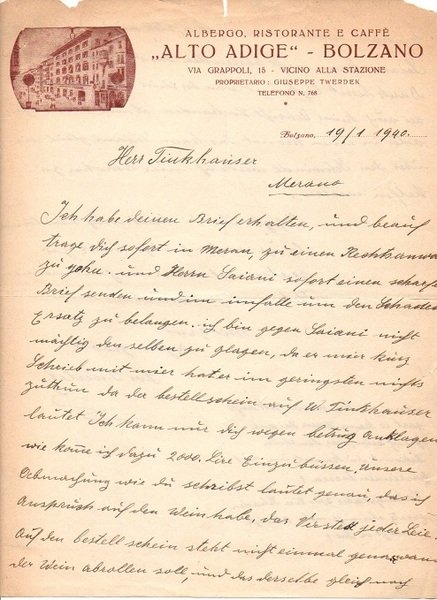 ALBERGO, RISTORANTE E CAFFÈ
„ALTO ADIGE“ - BOLZANO
VIA GRAPPOLI, 15 - VICINO ALLA STAZIONE
PROPRIETARIO: GIUSEPPE TWERDEK
TELEFONO N. 768
Bolzano, 19/1 1940.
Herr Tinkhauser
Merano
Ich habe deinen Brief erhalten, und beauf
trage dich sofort in Meran, zu einen Rechtsanwa
zu gehn. und Herrn Saiani sofort einen scharfe
Brief senden und im falle um den Schaden
Ersatz zu belangen. ich bin gegen Saiani nicht
mächtig den selben zu glagen, da er mir kurz
Schrieb mit mier hat er im geringsten nichts
zu thun da der bestellschein auf W. Tinkhauser
lautet Ich kann nur dich wegen betrug anklagen
wie komme ich dazu 2000. Lire Einzubüssen, unsere
Abmachung wie du schreibst lautet genau, das ich
Anspruch auf den Wein habe, das Versteht jeder Leie.
Auf den bestell schein steht nicht einmal genau wan
der Wein abrollen soll, und das derselbe gleich nach